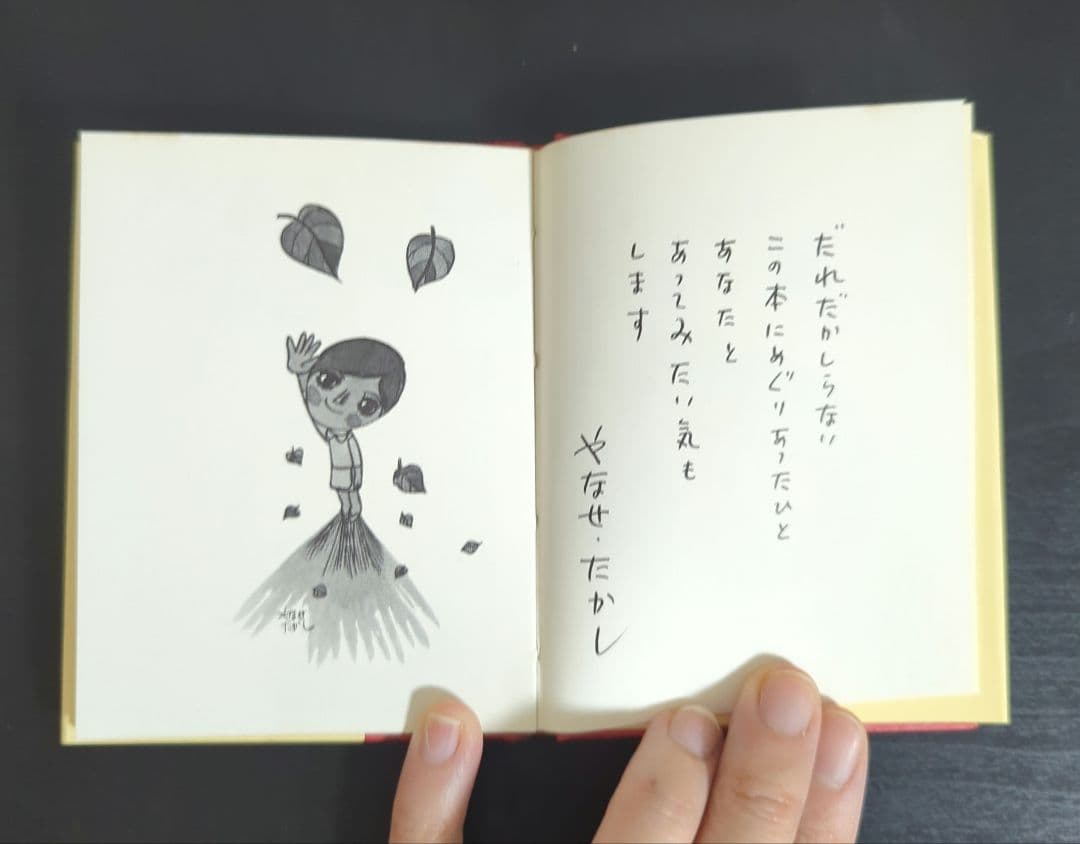 だれだかしらない
この本にめぐりあったひと
あなたと
あってみたい気も
します
やなせ・たかし
やなせ
たかし